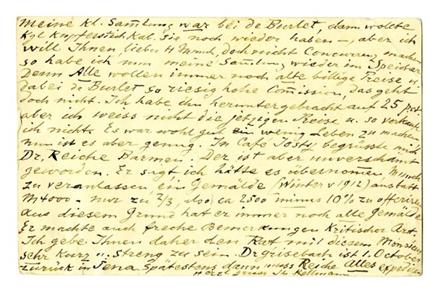 meine kl. Samlung war bei de Burlet, dann wollte
Kgl. noch wieder haben –, aber ich
will Ihnen, lieber H Munch, doch nicht Concurrenz machen
so habe ich nun meine Samlung wieder im Speicher
Denn Alle wollen immer noch alte billige Preise u.
dabei de Burlet so riesig hohe Comission, das geht
doch nicht. Ich habe ihn heruntergebracht auf 25 pct.
aber ich weiss nicht die jetzigen Preise u. so verkaufe
ich nichts. Es war wohl gut ein wenig Leben zu machen
nun ist es aber genug. Im Café Josty begrüsste mich
Dr. Reiche Barmen. Der ist aber unverschämt
geworden. Er sagt ich hätte es übernommen Munch
zu veranlassen, ein Gemälde (Winter v 1912) anstatt
M 4000.- nur zu 2/3, also ca 2500 minus 10% zu offerire
aus diesem Grund hat er immer noch alle Gemälde
Er machte auch freche Bemerkungen Kritischer Art.
Ich gebe Ihnen daher den Rat mit diesem Monsieur
sehr kurz u. streng zu sein. Dr Grisebach ist 1. October
zurück in Jena. Spätestens dann muss Reiche Alles
Ihr Kollmann